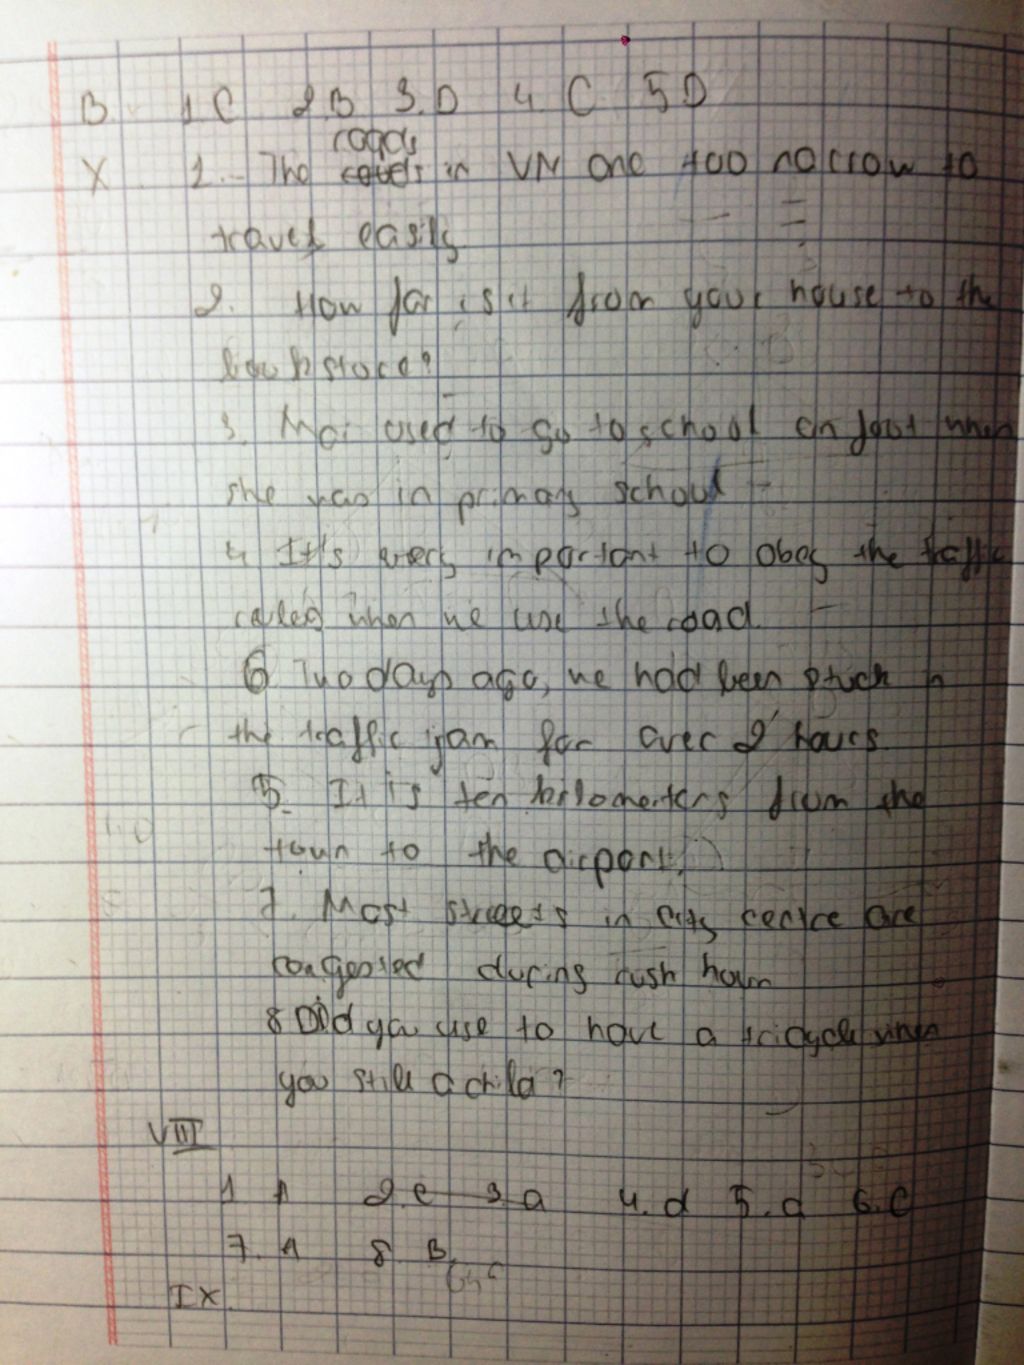 B. 1C 2.B 3.D 4.C 5D
roads
X. 1. The in VN are too narrow to
travel easily
2. How far is it from your house to the
bookstore?
3. Mai used to go to school on foot when
she was in primary school
4 It's very important to obey the traffic
rules when we use the road.
6 Two days ago, we had been stuck in
the traffic jam for over 2 hours.
5. It is ten kilometers from the
town to the airport.
7. Most streets in city centre are
congested during rush hour
8 Did you use to have a tricycle when
you still a child?
VIII
1 A 2.c 3.a 4.d 5.d 6.C
7. A 8. B
IX.